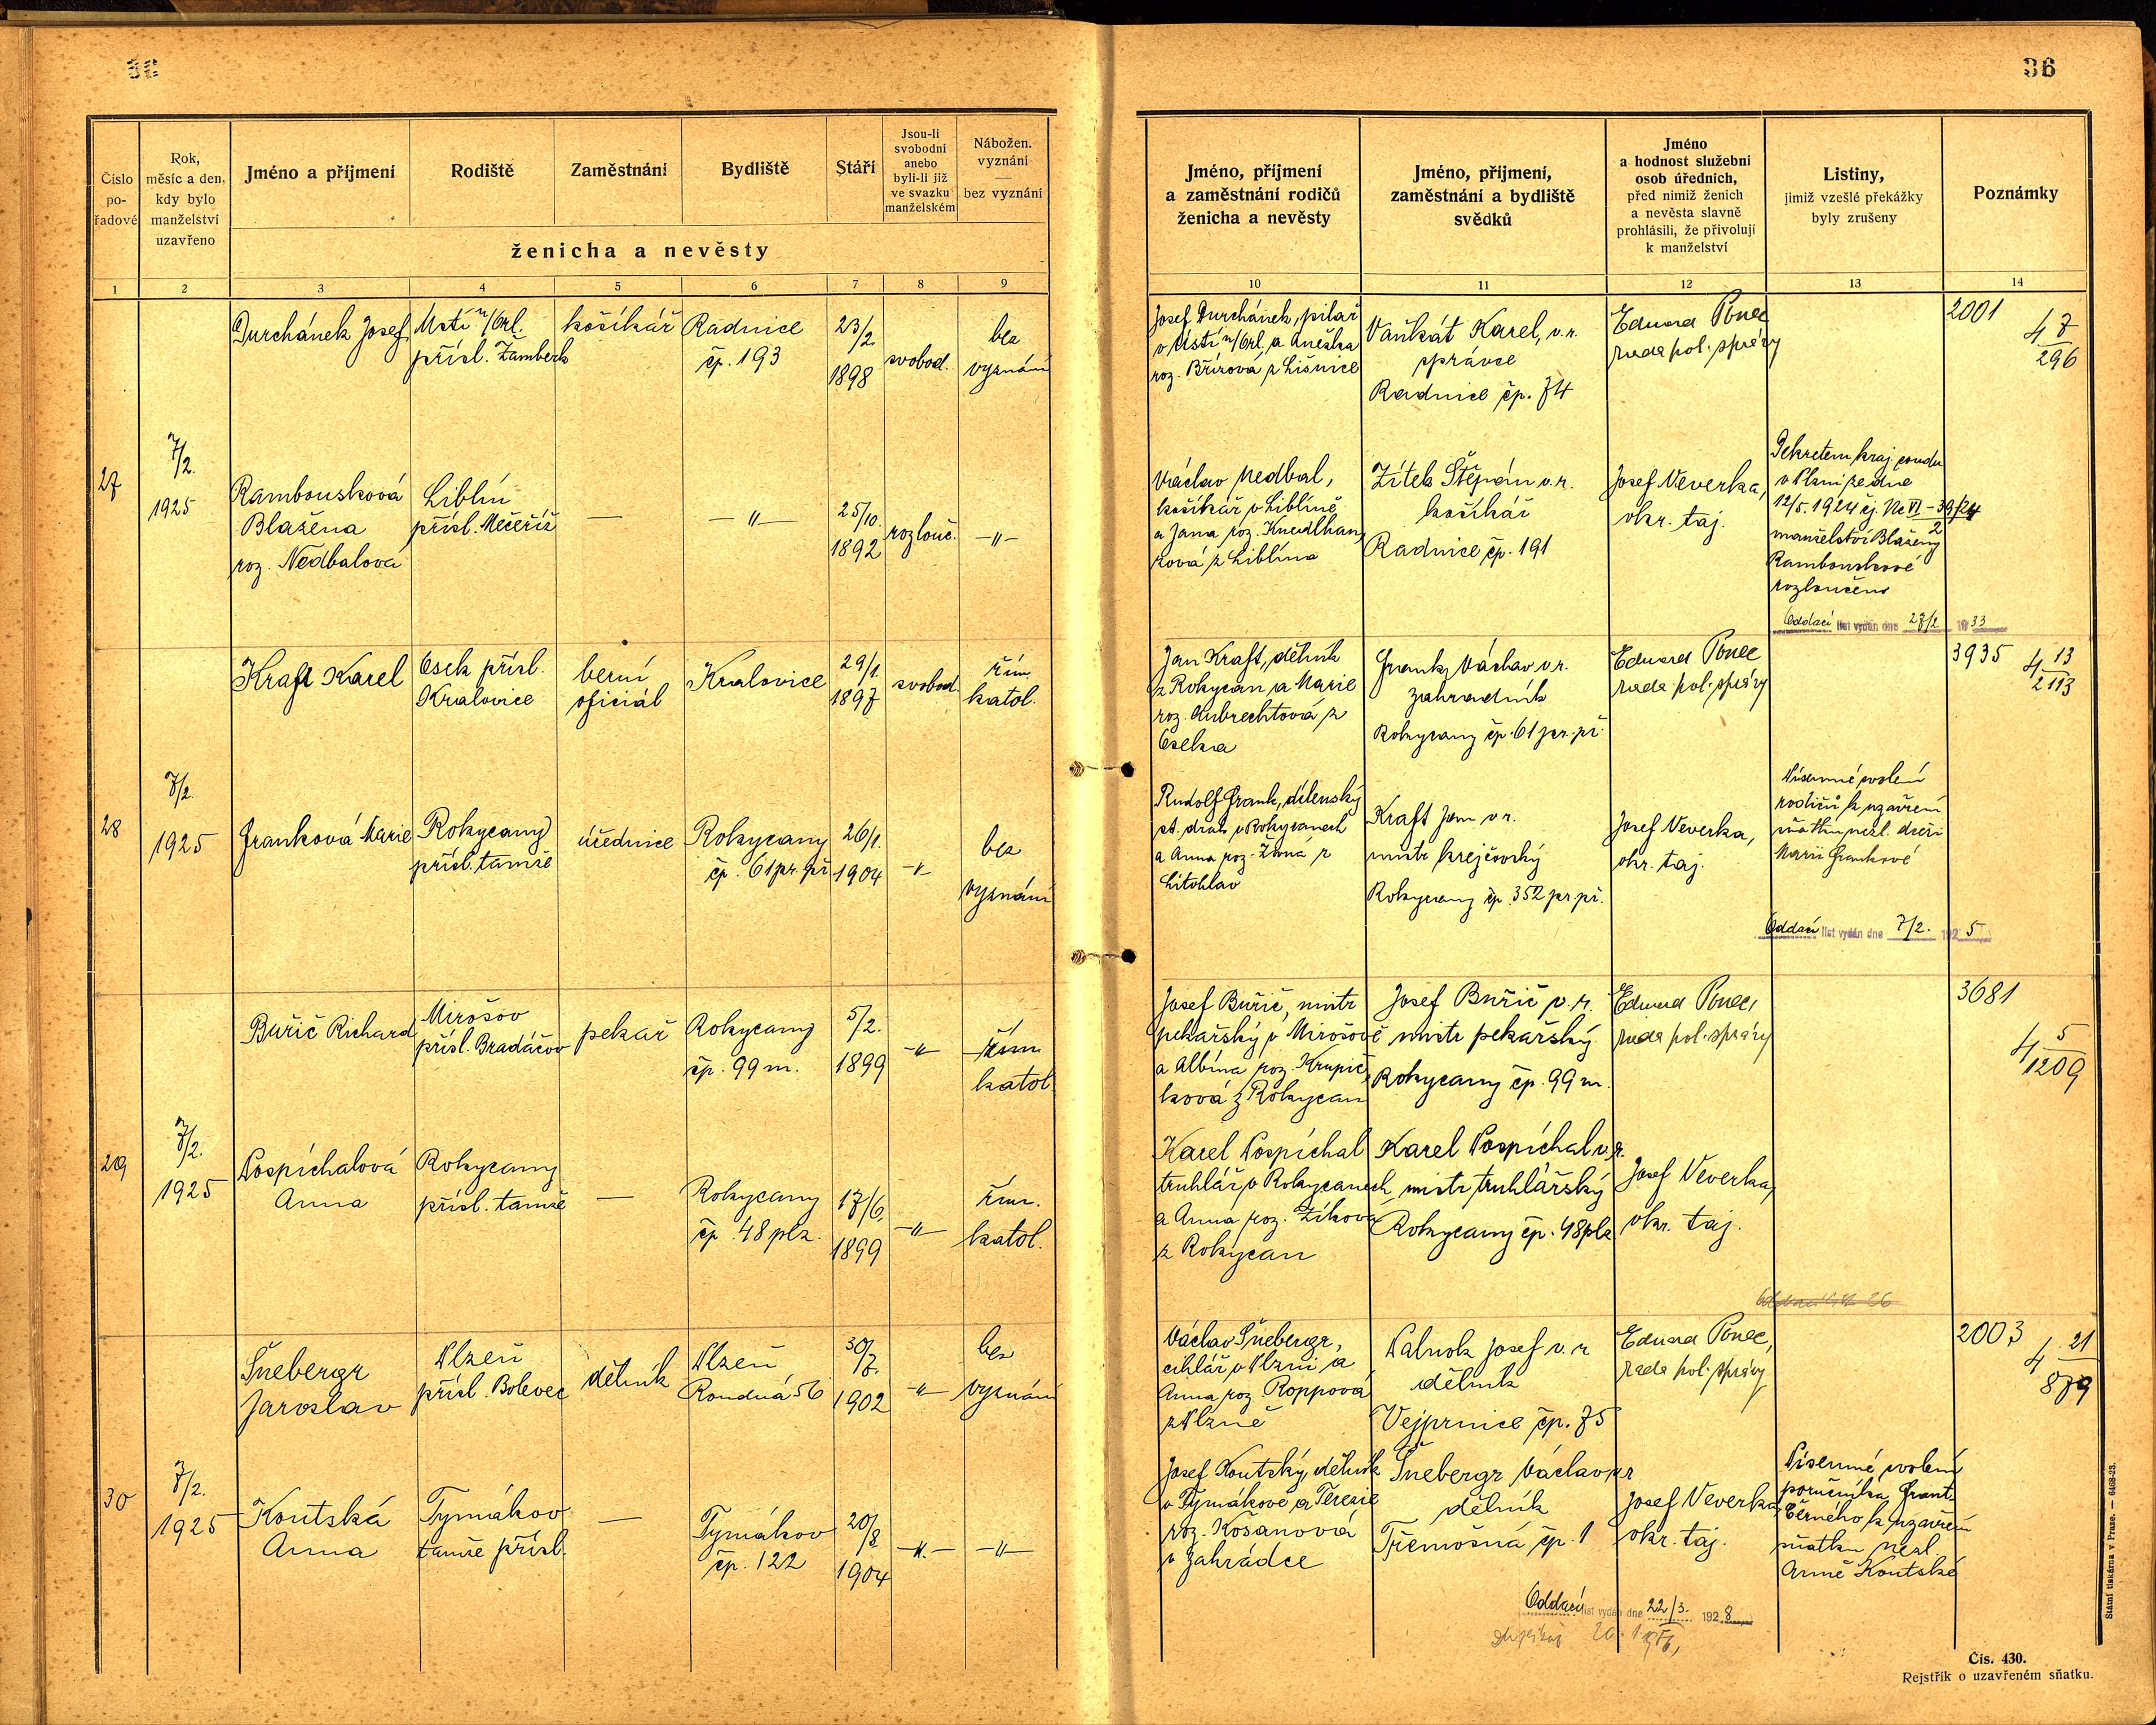 36
Číslo
po-
řadové
Rok,
měsíc a den,
kdy bylo
manželství
uzavřeno
Jméno a příjmení
Rodiště
Zaměstnání
Bydliště
Stáří
Jsou-li
svobodni
anebo
byli-li již
ve svazku
manželském
Nábožen.
vyznání
—
bez vyznání
ženicha a nevěsty
Jméno, příjmení
a zaměstnání rodičů
ženicha a nevěsty
Jméno, příjmení,
zaměstnání a bydliště
svědků
Jméno
a hodnost služební
osob úředních,
před nimiž ženich
a nevěsta slavně
prohlásili, že přivolují
k manželství
Listiny,
jimiž vzešlé překážky
byly zrušeny
Poznámky
1 2 3 4 5 6 7 8 9 10 11 12 13 14
27
7/2.
1925
Durchánek Josef
Ústí n/Orl.
přísl. Žamberk
košíkář
Radnice
čp. 193
23/2
1898
svobod.
bez
vyznání
Josef Durchánek, pilař
v Ústí n/Orl. a Anežka
roz. Břízová z Lišnice
Vaňkát Karel, v.r.
správce
Radnice čp. 74
Eduard Ponec
rada pol. správy
2001
4 7/296
Rambousková
Blažena
roz. Nedbalová
Liblín
přísl. Mečeříž
—
—"—
25/10.
1892
rozlouč.
—"—
Václav Nedbal,
košíkář v Liblíně
a Jana roz. Knedlhan
zová z Liblína
Zítek Štěpán v.r.
košíkář
Radnice čp. 191
Josef Veverka,
okr. taj.
Dekretem kraj. soudu
v Plzni ze dne
12/5. 1924 čj. Nc VI - 39/24
2
manželství Blaženy
Rambouskové
rozloučeno
Oddací list vydán dne 27/2 1933
28
7/2.
1925
Kraft Karel
Osek přísl.
Kralovice
berní
oficiál
Kralovice
29/1.
1897
svobod.
řím.
katol.
Jan Kraft, dělník
z Rokycan a Marie
roz. Aubrechtová z
Oseka
Frank Václav v.r.
zahradník
Rokycany čp. 61 pr. př.
Eduard Ponec
rada pol. správy
3935
4 13/2113
Franková Marie
Rokycany
přísl. tamže
úřednice
Rokycany
čp. 61 pr. př.
26/1.
1904
—"—
bez
vyznání
Rudolf Frank, dílenský
st. drah v Rokycanech
a Anna roz. Živná z
Litohlav
Kraft Jan v.r.
mistr krejčovský
Rokycany čp. 352 pr. př.
Josef Veverka,
okr. taj.
Písemné svolení
rodičů k uzavření
sňatku nezl. dceři
Marii Frankové
Oddací list vydán dne 7/2. 1925
29
7/2.
1925
Buřič Richard
Mirošov
přísl. Bradáčov
pekař
Rokycany
čp. 99 m.
5/2.
1899
—"—
řím.
katol.
Josef Buřič, mistr
pekařský v Mirošově
a Albína roz. Krupič
ková z Rokycan
Josef Buřič v.r.
mistr pekařský
Rokycany čp. 99 m.
Eduard Ponec,
rada pol. správy
3681
4 5/1209
Pospíchalová
Anna
Rokycany
přísl. tamže
—
Rokycany
čp. 48 plz.
17/6.
1899
—"—
řím.
katol.
Karel Pospíchal
truhlář v Rokycanech
a Anna roz. Zíková
z Rokycan
Karel Pospíchal v.r.
mistr truhlářský
Rokycany čp. 48 plz
Josef Veverka,
okr. taj.
30
7/2.
1925
Šnebergr
Jaroslav
Plzeň
přísl. Bolevec
dělník
Plzeň
Roudná 56
30/7.
1902
—"—
bez
vyznání
Václav Šnebergr,
cihlář v Plzni a
Anna roz. Roppová
z Plzně
Palnok Josef v.r
dělník
Vejprnice čp. 75
Eduard Ponec,
rada pol. správy
2003
4 21/879
Koutská
Anna
Tymákov
tamže přísl.
—
Tymákov
čp. 122
20/8
1904
—"—
—"—
Josef Koutský, dělník
v Tymákově a Terezie
roz. Košanová
v Zahrádce
Šnebergr Václav v.r
dělník
Třemošná čp. 1
Josef Veverka,
okr. taj.
Písemné svolení
poručníka Frant.
Černého k uzavření
sňatku nezl
Anně Koutské
Oddací list vydán dne 22/3. 1928
Státní tiskárna v Praze. — 6468-23.
Čís. 430.
Rejstřík o uzavřeném sňatku.